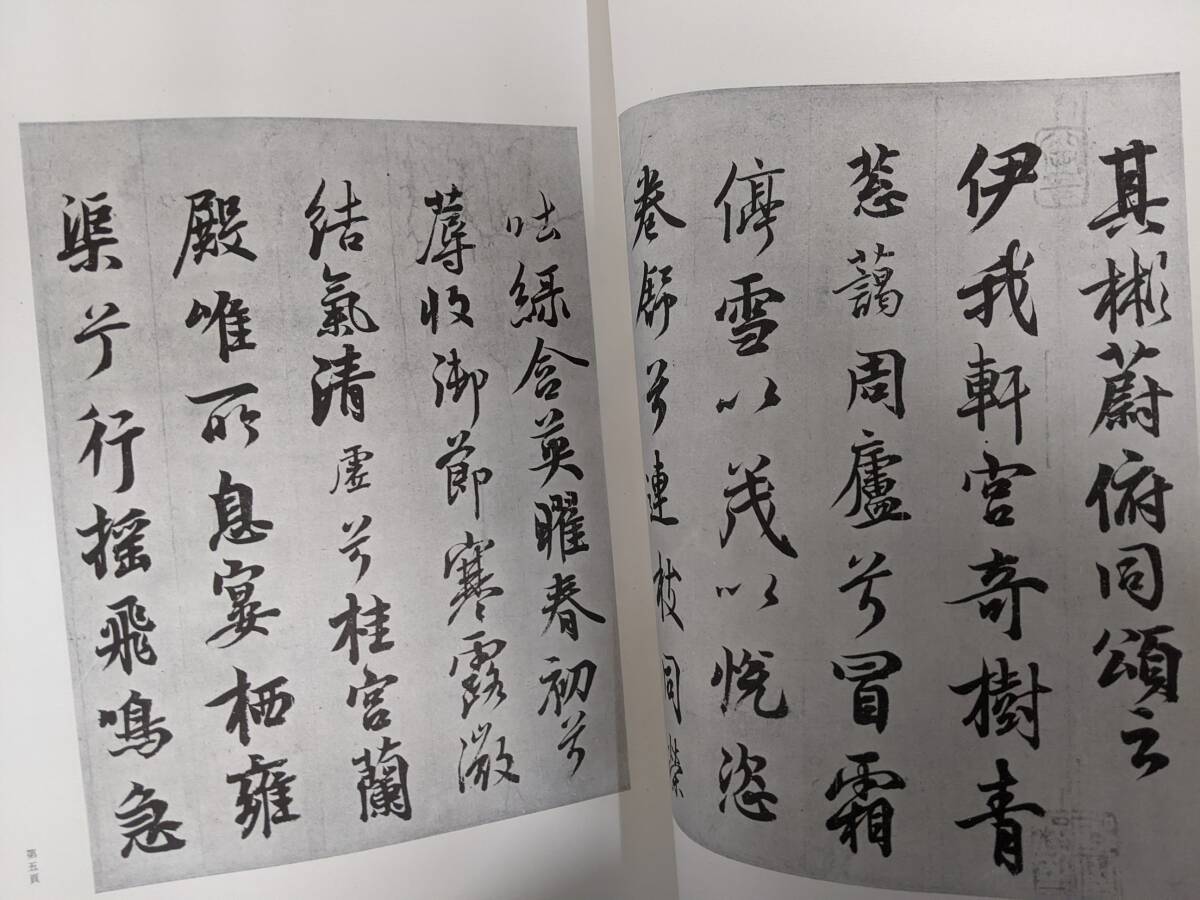 其彬蔚俯同頌云
伊我軒宮奇樹青
葱藹周廬兮冒霜
停雪以茂以悅恣
卷舒兮連枝同榮
吐綠含英曜春初兮
蓐收御節寒露微
結氣清虛兮桂宮蘭
殿唯所息宴栖雍
渠兮行搖飛鳴急
第五頁